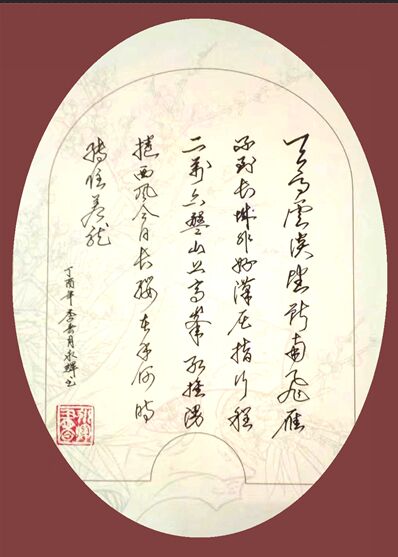 天高雲淡望断南飛雁
不到长城非好漢屈指行程
二万六盤山上高峯红旗漫
捲西风今日长缨在手何时
缚住苍龙
丁酉年季春月永辉书